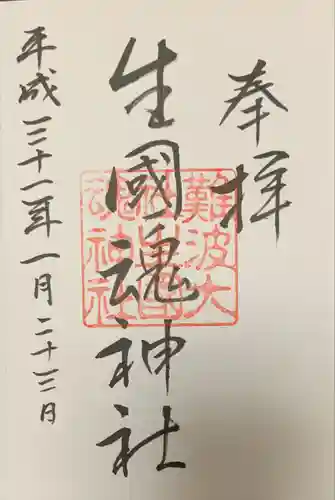 奉拝
生國魂神社
平成三十一年一月二十三日
難波大
魂神社